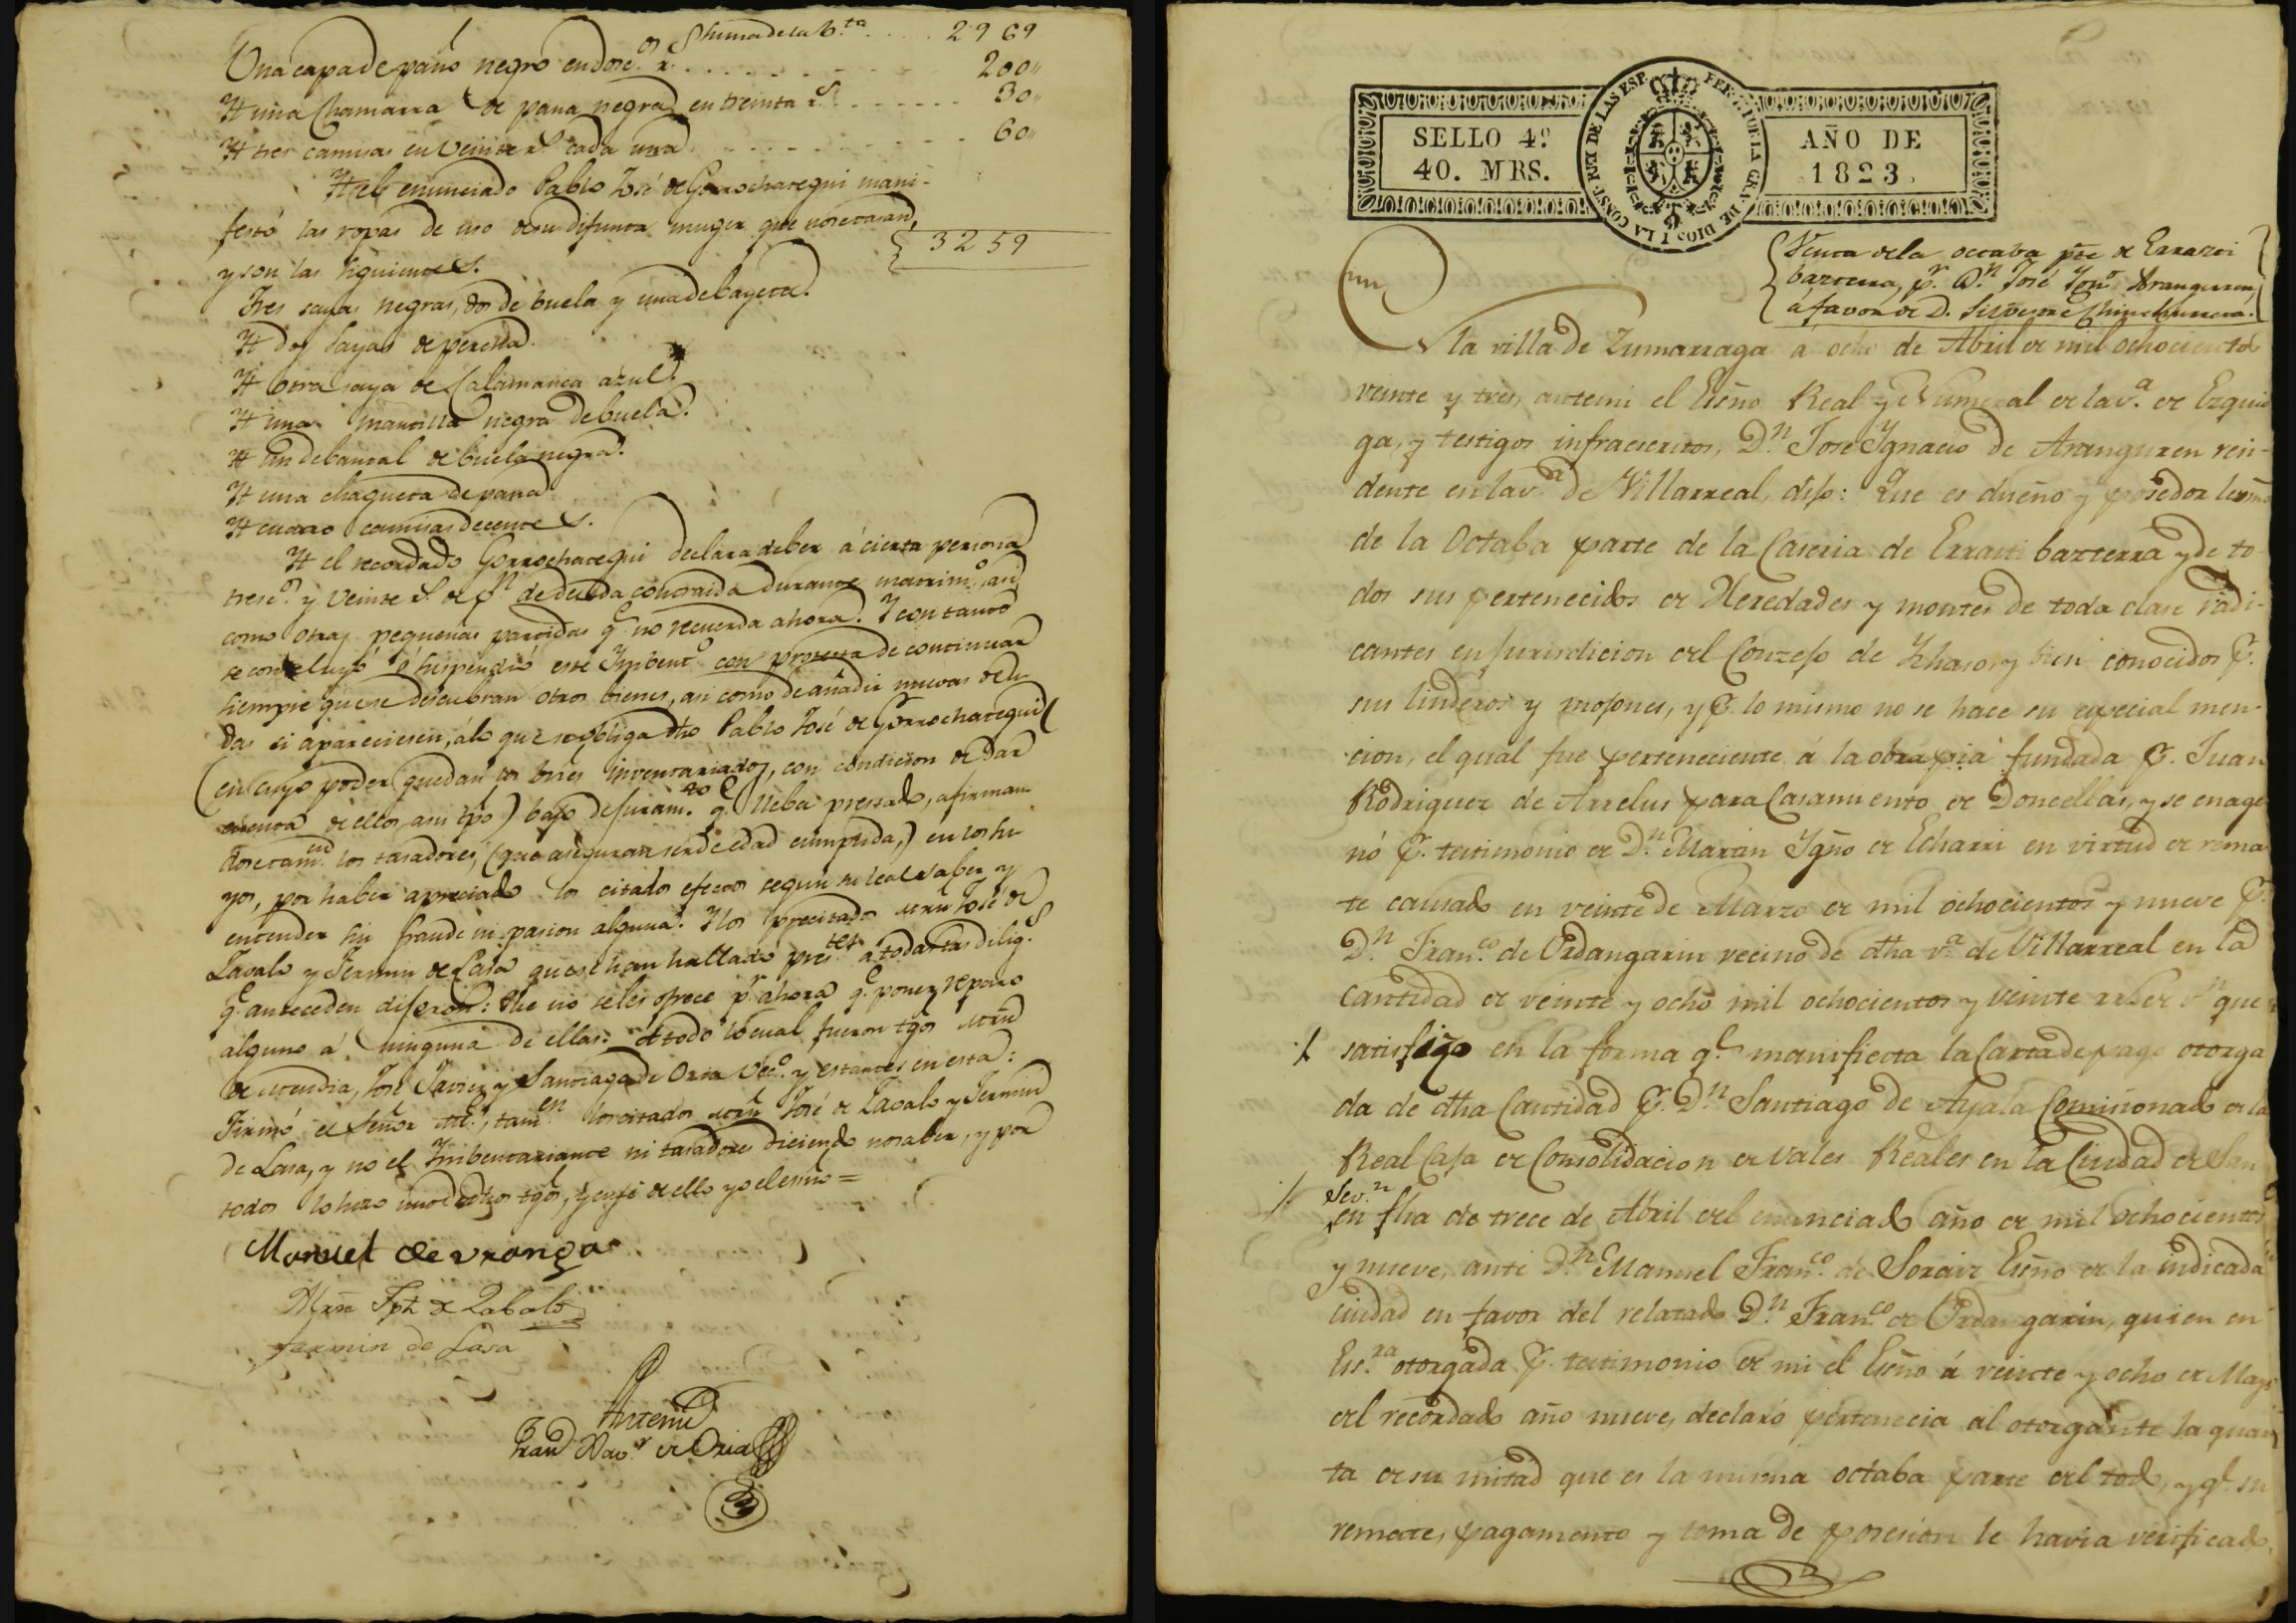 Shuma dela b.ta .... 2969
Una capa de paño negro en dosc.os r.s ........ 200"
Yt una Chamarra de pana negra en treinta r.s ....... 30"
Yt tres camisas en veinte r.s cada una ........ 60"
3259
Yt el enunciado Pablo José de Gorrochategui mani-
festó las ropas de uso de su difunta muger que nose tasan,
y son las siguientes.
Tres sayas negras, dos de buela y una de bayeta.
Yt dos sayas de
Yt otra saya de Calamanca azul.
Yt una mantilla negra de buela.
Yt un debantal de buela negra.
Yt una chaqueta de pana
Yt cuatro camisas decentes.
Yt el recordado Gorrochategui declara deber á cierta persona
tresc.os y veinte r.s de p.r de deuda contraida durante matrim.o, asi
como otras pequeñas partidas q.e no recuerda ahora. Y con tanto
se concluyó é suspendió este Ynbent.o con protesta de continuar
siempre que se descubran otros bienes, asi como de añadir nuevas deu-
das si apareciesen, á lo que se obliga dho Pablo José de Gorrochategui
(en cuyo poder quedan los bienes inventariados, con condicion de dar
cuenta de ellos asu tpo) bajo de juram.to q.e lleba prestado, afirman-
dose tam.en los tasadores, (que aseguran ser de edad cumplida,) en los su-
yos, por haber apreciado los citados efectos segun su leal saber y
entender sin fraude ni pasion alguna. Y los precitados Mrn José de
Zavalo y Fermin de Lasa que se han hallado pres.tes a todas las dilig.s
q.e anteceden dijeron: Que no se les ofrece p.r ahora q.e poner reparo
alguno á ninguna de ellas: A todo lo cual fueron tgos Mrn
de Mendia, José Javier y Santiago de Oria vec.os y estantes en esta:
Firmó el Señor Alc.e, tam.en los citados Mrn José de Zavalo y Fermin
de Lasa, y no el Ynbentariante ni tasadores diciendo no saber, y por
todos lo hizo uno de dhos tgos, y en fe de ello yo el esno =
Manuel de Uranga
Mrn Jph de Zabalo
fermin de Lasa
Antemi
Fran Xav.r de Oria
SELLO 4º
40. MRS.
AÑO DE
1823.
Venta de la octaba pte de Errazti
barrena, p.r D.n José Ign.o Aranguren,
a favor de D. Silvestre Chinchurreta.
En la villa de Zumarraga á ocho de Abril de mil ochocientos
veinte y tres, antemi el Esño Real y Numeral de la v.a de Ezquio
ga, y testigos infraescritos, D.n José Ygnacio de Aranguren resi-
dente en la v.a de Villarreal, dijo: Que es dueño y posedor lexmo
de la Octaba parte de la Caseria de Errasti barrena y de to-
dos sus pertenecidos de Heredades y montes de toda clase radi-
cantes en jurisdicion del Conzejo de Ychaso, y bien conocidos p.r
sus linderos y mojones, y p.r lo mismo no se hace su especial men-
cion, el qual fue perteneciente á la obra pia fundada p.r Juan
Rodriguez de Arrelus para Casamiento de Doncellas, y se enage
nó p.r testimonio de D.n Martin Ygño de Echarri en virtud de rema
te causado en veinte de Marzo de mil ochocientos y nueve p.r
D.n Fran.co de Ordangarin vecino de dha v.a de Villarreal en la
cantidad de veinte y ocho mil ochocientos y veinte rrs de v.n que
satisfizo en la forma q.e manifiesta la Carta de pago otorga
da de dha Cantidad p.r D.n Santiago de Ayala Comisionado de la
Real Caja de Consolidacion de vales Reales en la Ciudad de San
Sev.n
en fha de trece de Abril del enunciado año de mil ochocientos
y nueve, ante D.n Manuel Fran.co de Soraiz Esño de la indicada
ciudad en favor del relatado D.n Fran.co de Ordangarin, quien en
Esc.ra otorgada p.r testimonio de mi el Esño á veinte y ocho de Mayo
del recordado año nueve, declaró pertenecia al otorgante la quar
ta de su mitad que es la misma octaba parte del todo, y q.e su
remate, pagamento y toma de posesion le havia verificado